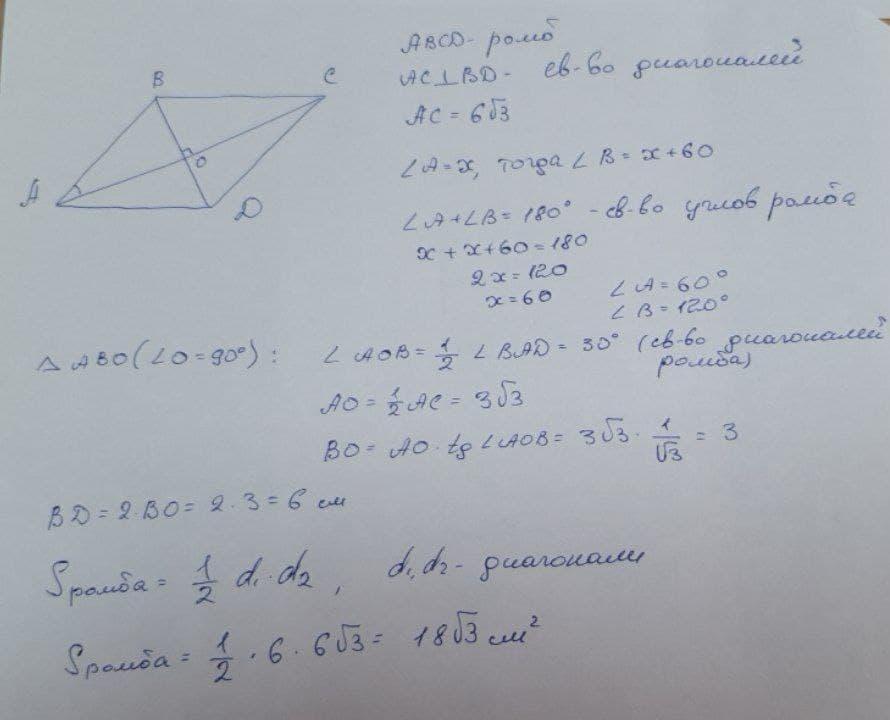 ABCD - ромб
AC⊥BD - св-во диагоналей
AC = 6√3
∠A = x, тогда ∠B = x+60
∠A+∠B = 180° - св-во углов ромба
x + x+60 = 180
2x = 120
x = 60
∠A = 60°
∠B = 120°
B
C
A
O
D
△ABO (∠O = 90°): ∠AOB = 1/2 ∠BAD = 30° (св-во диагоналей
ромба)
AO = 1/2 AC = 3√3
BO = AO · tg ∠AOB = 3√3 · 1/√3 = 3
BD = 2·BO = 2·3 = 6 см
Sромба = 1/2 d₁·d₂, d₁,d₂ - диагонали
Sромба = 1/2 · 6 · 6√3 = 18√3 см²